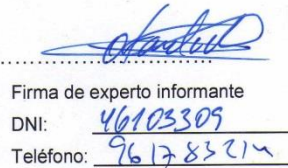 Firma de experto informante
DNI: 46103309
Teléfono: 961783214